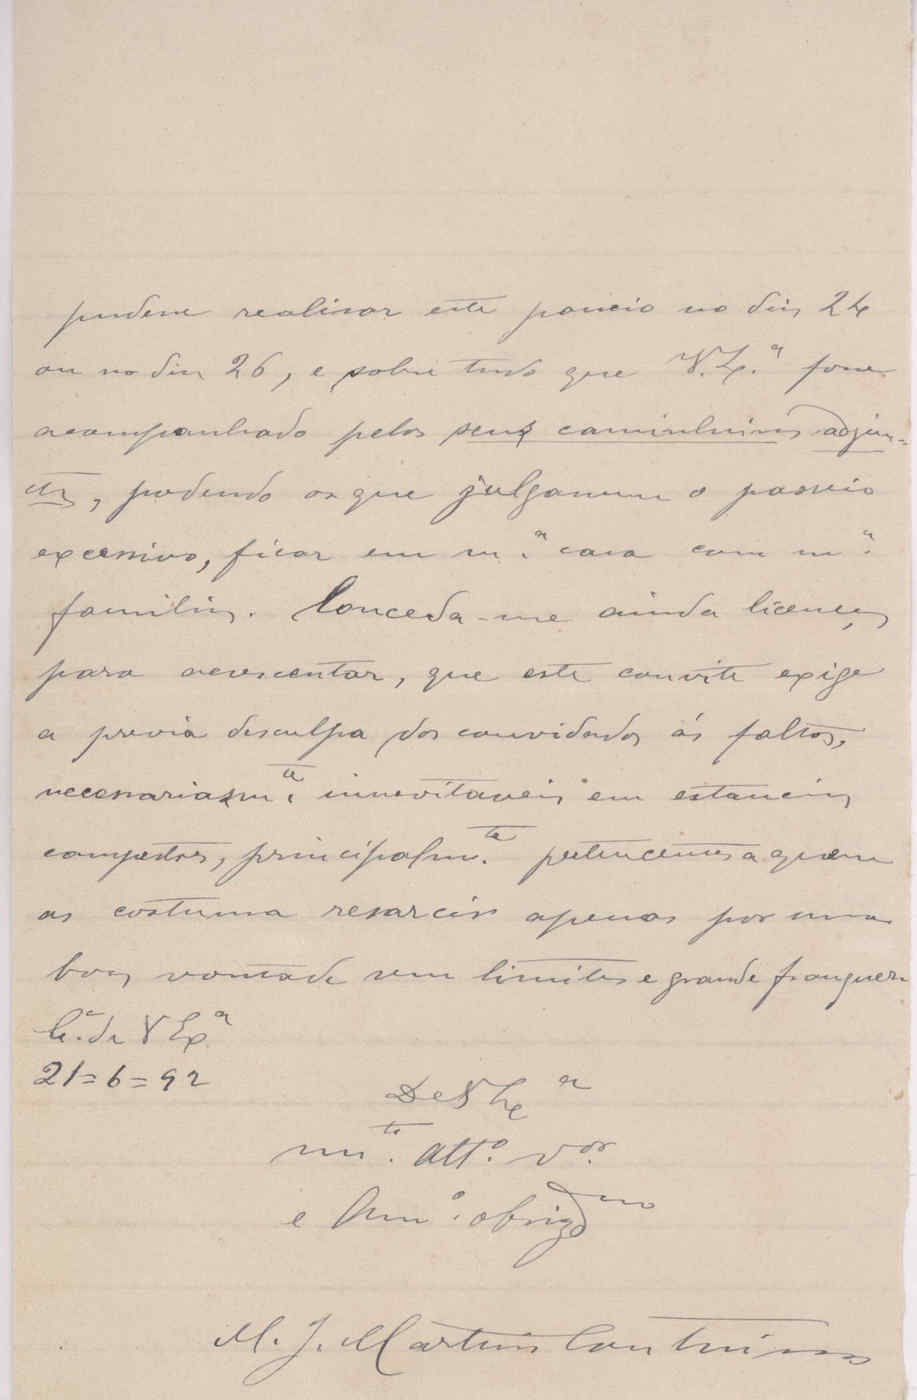 pudesse realisar este passeio no dia 24
ou no dia 26, e sobre tudo que V. Ex.ª fosse
acompanhado pelos seus caminheiros adjun-
tos, podendo os que julgassem o passeio
excessivo, ficar em m.ª casa com m.ª
familia. Conceda-me ainda licença
para acrescentar, que este convite exige
a previa desculpa dos convidados ás faltas,
necessariam.te innevitaveis em estancias
campestres, principalm.te pertencentes a quem
as costuma resarcir apenas por uma
boa vontade sem limites e grande franquesa
C.ª de V Ex.ª
21=6=92
De V Ex.ª
m.to att.º v.or
e Am.º obrigd.mo
M. J. Martins Contreiras